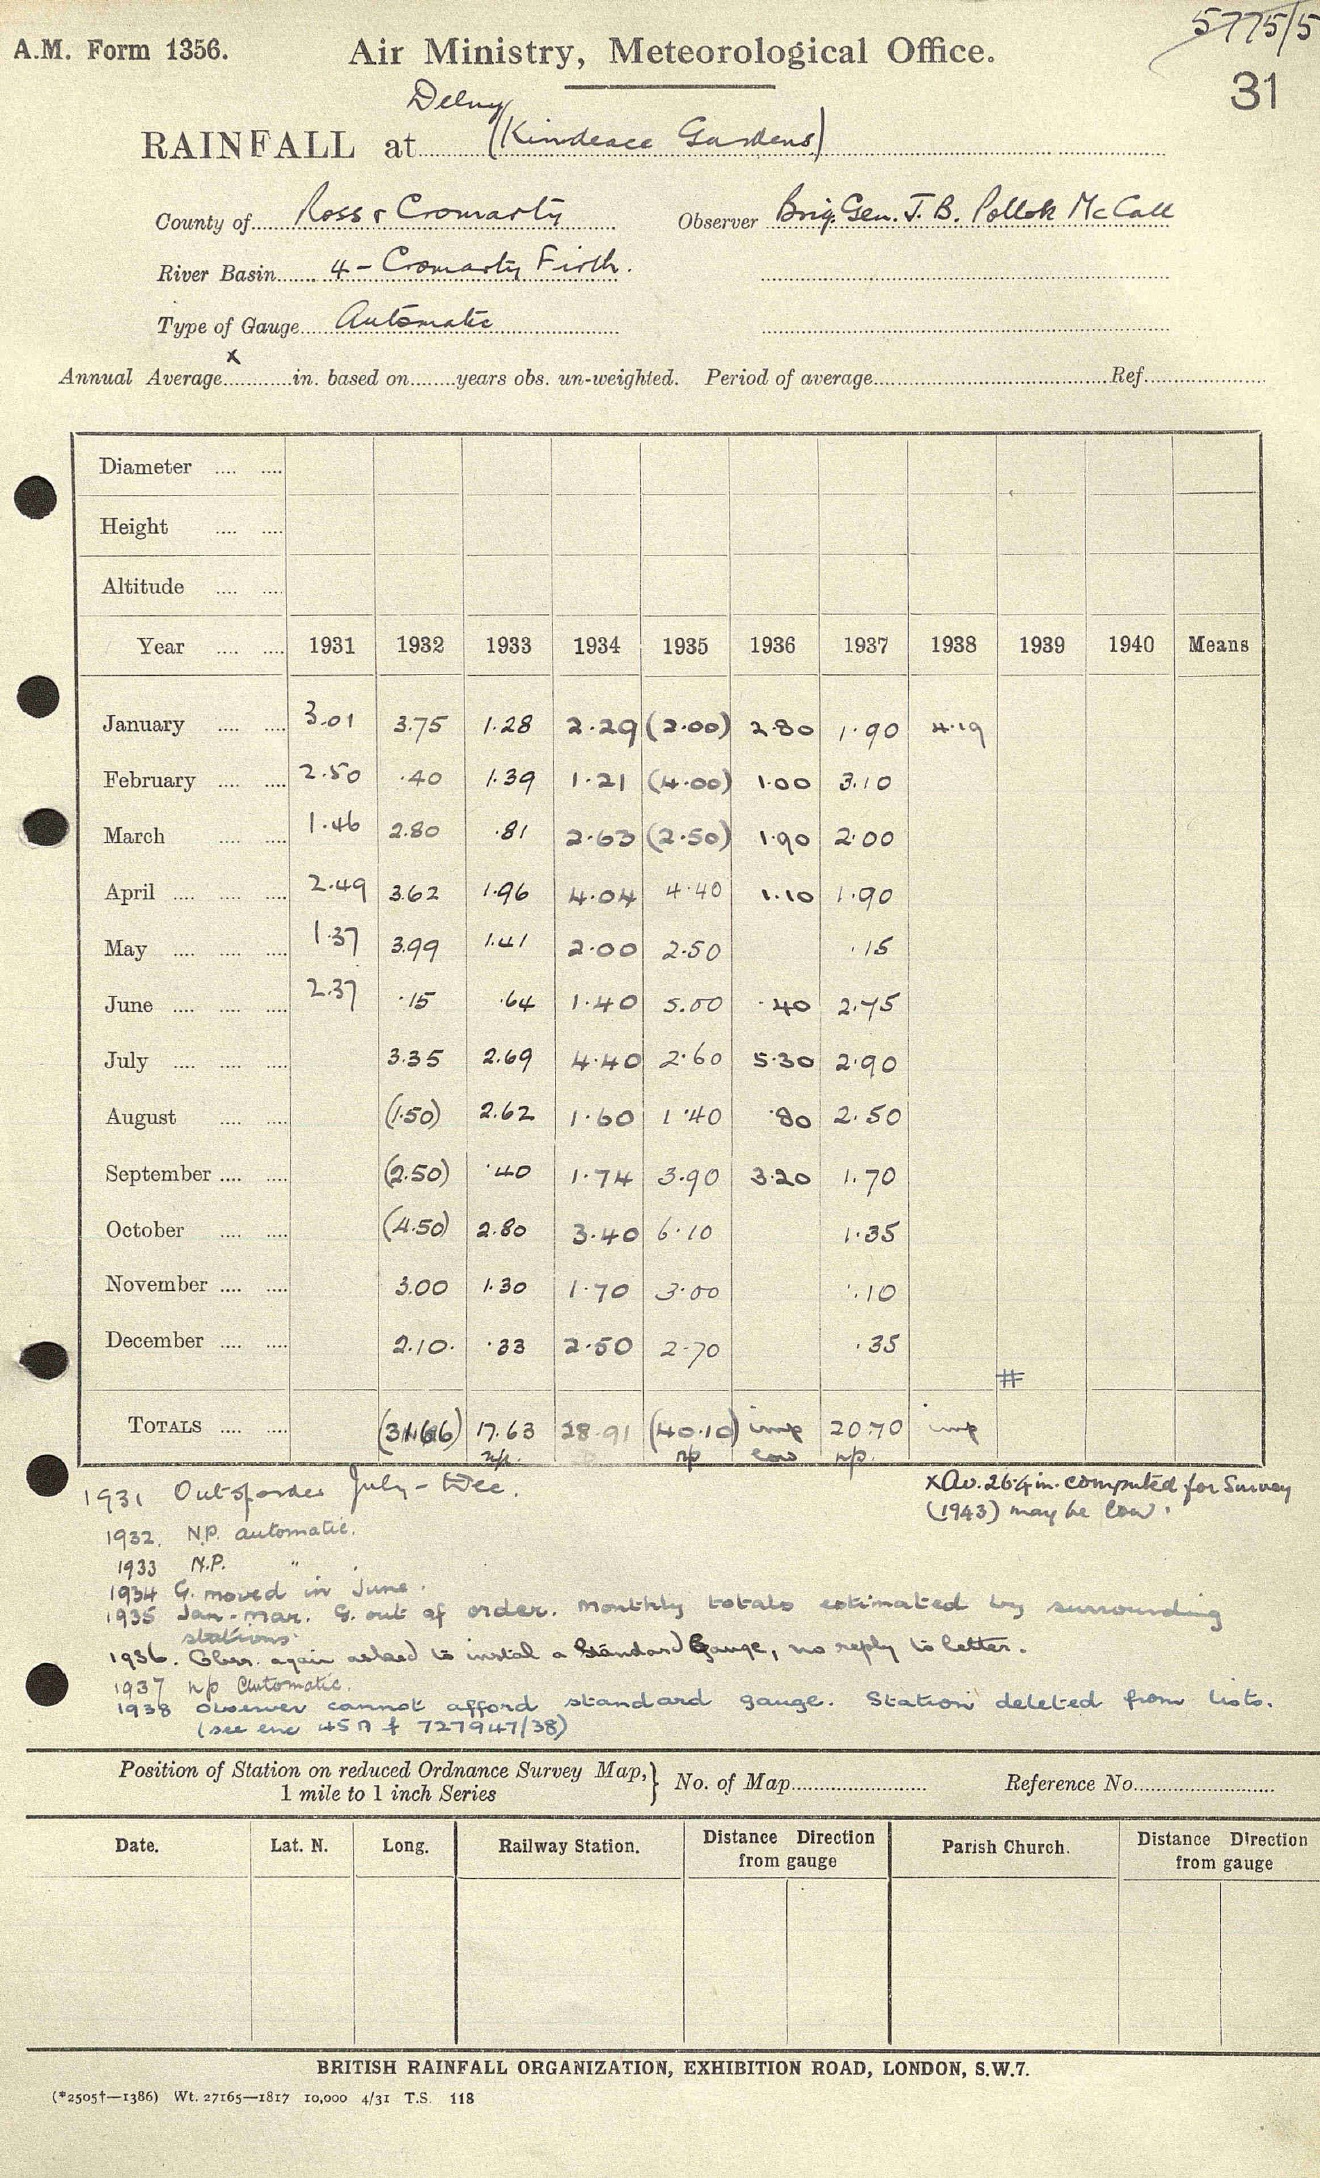 5775/5
A.M. Form 1356. Air Ministry, Meteorological Office.
31
Delny
RAINFALL at (Kindeace Gardens)
County of Ross & Cromarty Observer Brig. Gen. J. B. Pollok McCall
River Basin 4 - Cromarty Firth.
Type of Gauge Automatic
x
Annual Average in. based on years obs. un-weighted. Period of average Ref.
Diameter
Height
Altitude
Year 1931 1932 1933 1934 1935 1936 1937 1938 1939 1940 Means
January 3.01 3.75 1.28 2.29 (2.00) 2.80 1.90 4.19
February 2.50 .40 1.39 1.21 (4.00) 1.00 3.10
March 1.46 2.80 .81 2.63 (2.50) 1.90 2.00
April 2.49 3.62 1.96 4.04 4.40 1.10 1.90
May 1.37 3.99 1.41 2.00 2.50 .15
June 2.37 .15 .64 1.40 5.00 .40 2.75
July 3.35 2.69 4.40 2.60 5.30 2.90
August (1.50) 2.62 1.60 1.40 .80 2.50
September (2.50) .40 1.74 3.90 3.20 1.70
October (4.50) 2.80 3.40 6.10 1.35
November 3.00 1.30 1.70 3.00 .10
December 2.10. .33 2.50 2.70 .35
#
TOTALS (31.66) 17.63 28.91 (40.10) imp 20.70 imp
np. np low np.
1931 Out of order July - Dec.
x Av. 26.4 in. computed for Survey
(1943) may be low.
1932. N.P. automatic.
1933 N.P. " .
1934 G. moved in June.
1935 Jan - Mar. G. out of order. Monthly totals estimated by surrounding
stations.
1936. Obser. again asked to instal a Standard Gauge, no reply to letter.
1937 np Automatic.
1938 Observer cannot afford standard gauge. Station deleted from lists.
(see enc 45 727947/38)
Position of Station on reduced Ordnance Survey Map, } No. of Map Reference No.
1 mile to 1 inch Series
Date. Lat. N. Long. Railway Station. Distance Direction from gauge Parish Church. Distance Direction from gauge
BRITISH RAINFALL ORGANIZATION, EXHIBITION ROAD, LONDON, S.W.7.
(*2505†—1386) Wt. 27165—1817 10,000 4/31 T.S. 118